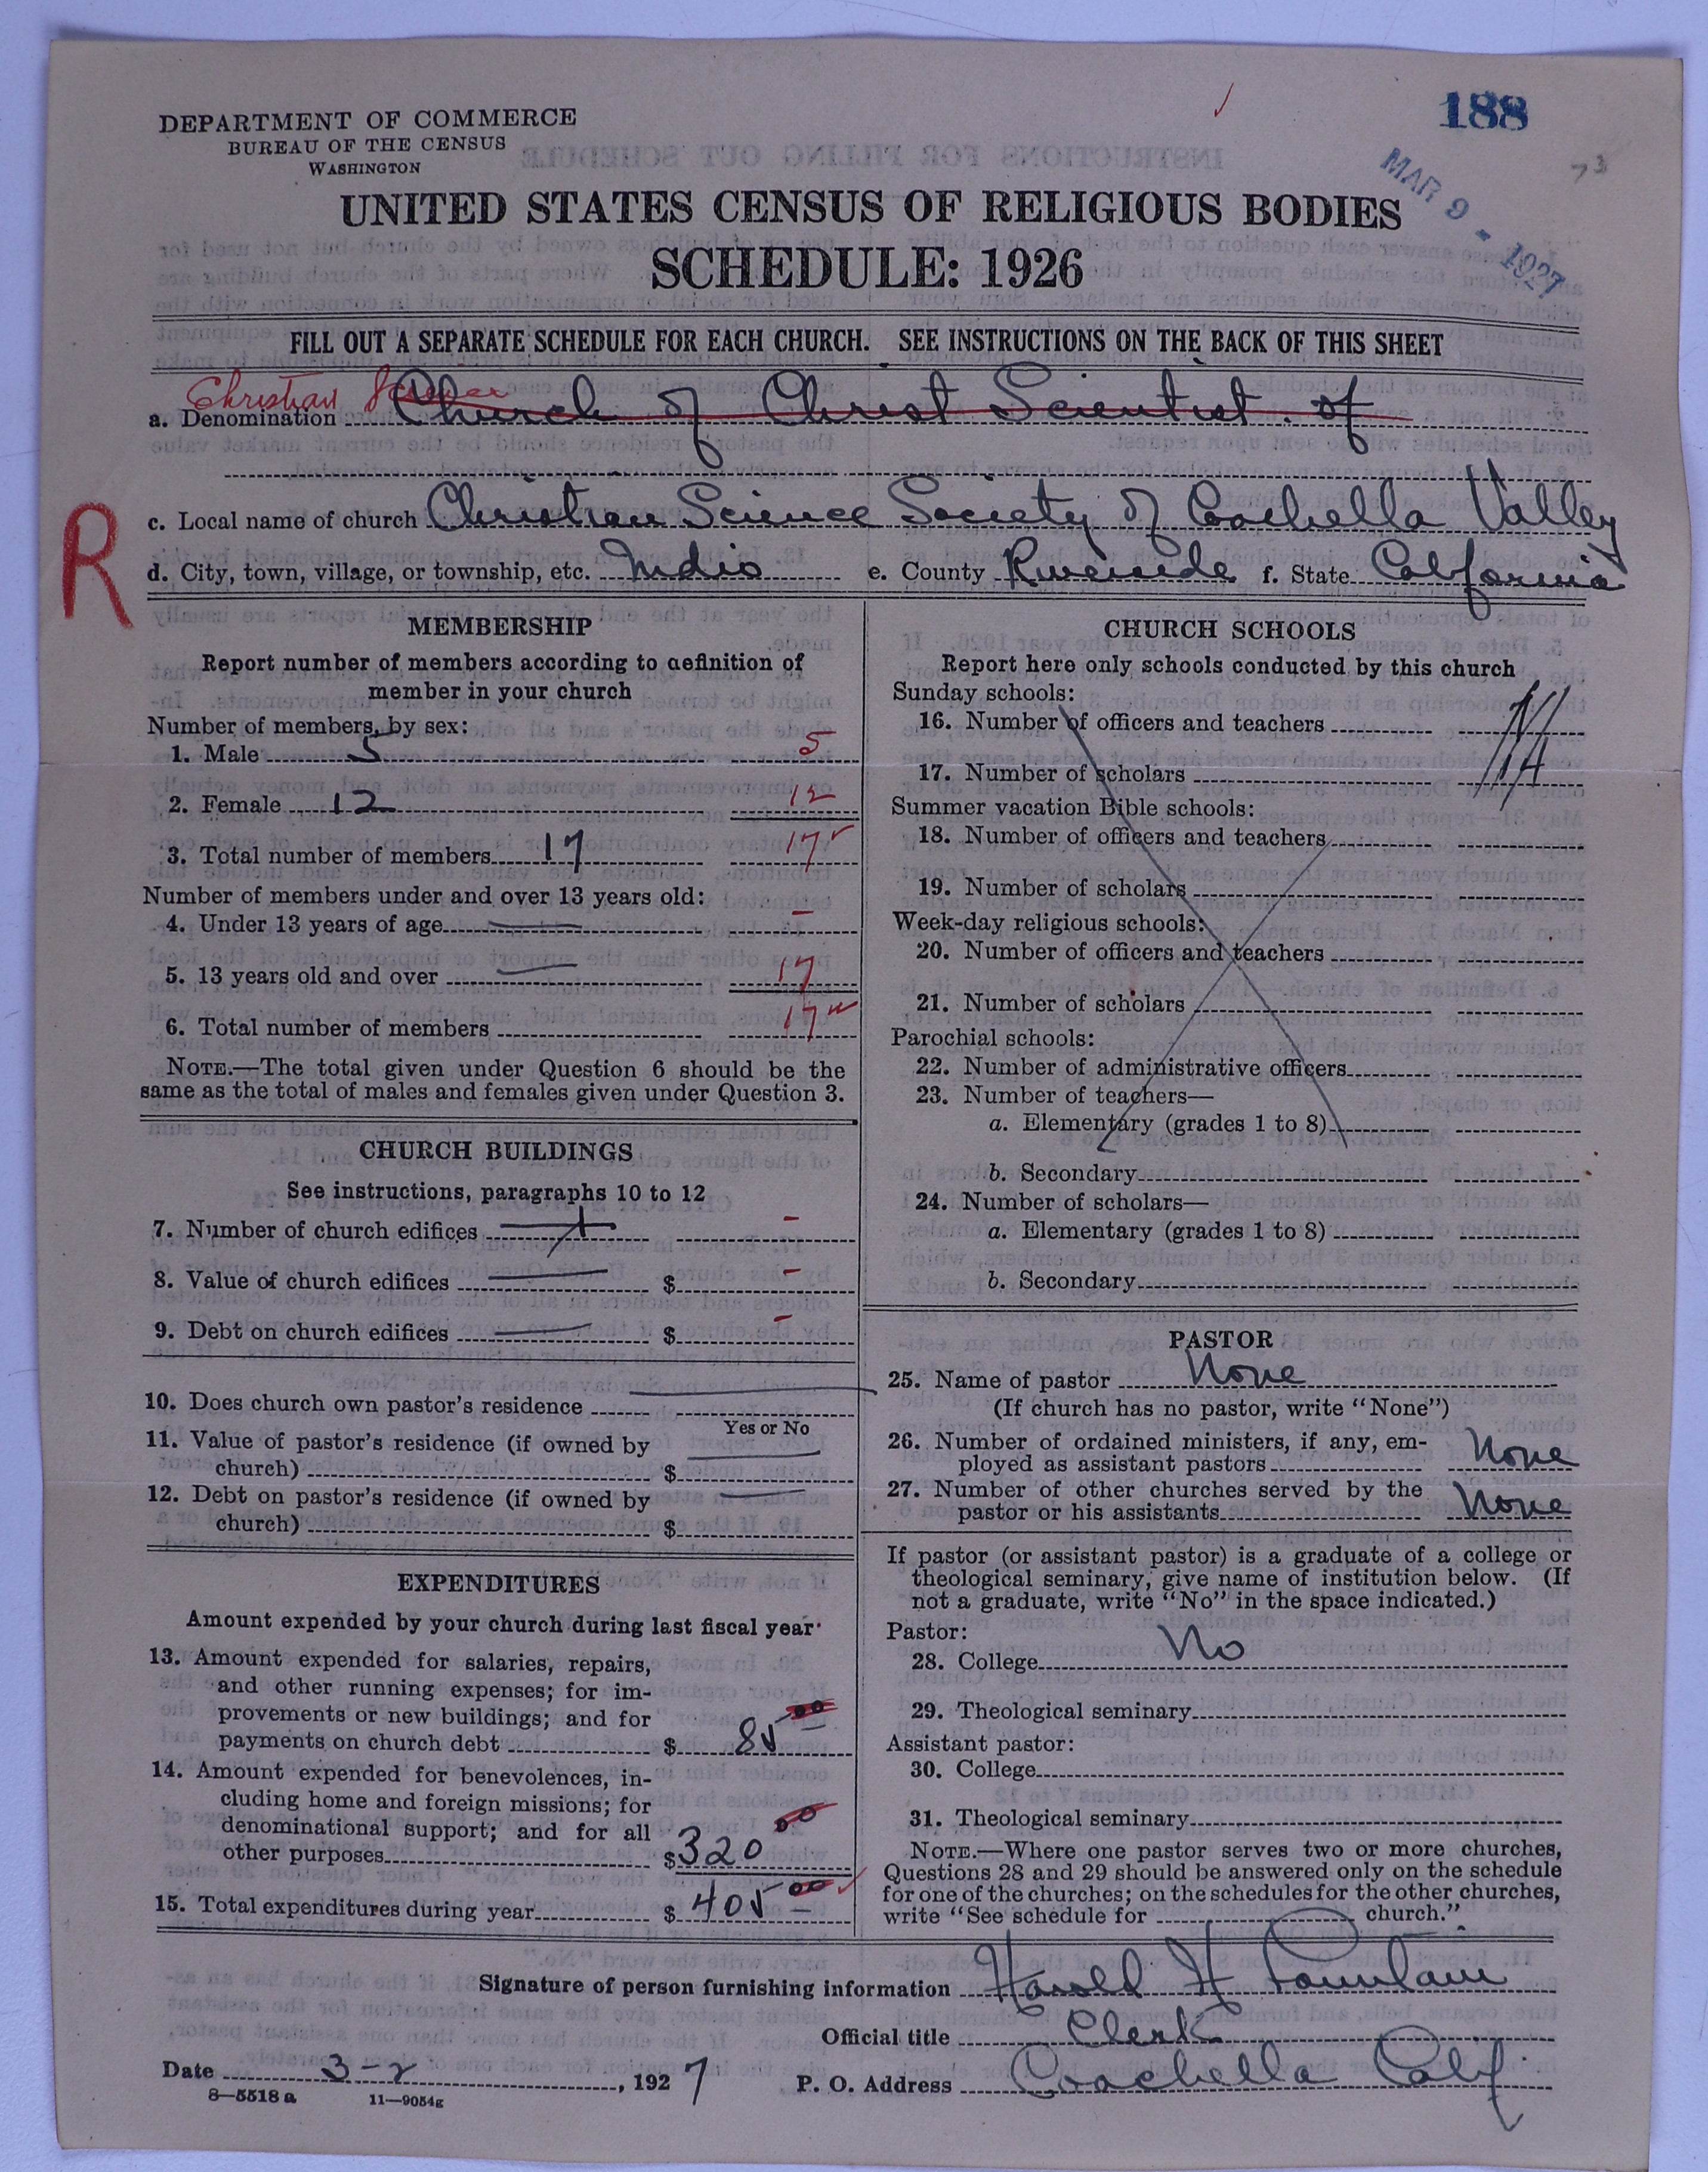 188
MAR 9 - 1927
73
DEPARTMENT OF COMMERCE
BUREAU OF THE CENSUS
WASHINGTON
UNITED STATES CENSUS OF RELIGIOUS BODIES
SCHEDULE: 1926
FILL OUT A SEPARATE SCHEDULE FOR EACH CHURCH. SEE INSTRUCTIONS ON THE BACK OF THIS SHEET
Christian Science
a. Denomination Church of Christ Scientist. of
R
c. Local name of church Christian Science Society of Coachella Valley
d. City, town, village, or township, etc. Indio e. County Riverside f. State California
MEMBERSHIP
Report number of members according to definition of
member in your church
Number of members, by sex:
1. Male 5 5
2. Female 12 12
3. Total number of members 17 17
Number of members under and over 13 years old:
4. Under 13 years of age — –
5. 13 years old and over — 17
6. Total number of members 17
NOTE.—The total given under Question 6 should be the
same as the total of males and females given under Question 3.
CHURCH BUILDINGS
See instructions, paragraphs 10 to 12
7. Number of church edifices –
8. Value of church edifices — $ –
9. Debt on church edifices — $ –
10. Does church own pastor's residence —
Yes or No
11. Value of pastor's residence (if owned by
church) $ —
12. Debt on pastor's residence (if owned by
church) $ —
EXPENDITURES
Amount expended by your church during last fiscal year
13. Amount expended for salaries, repairs,
and other running expenses; for im-
provements or new buildings; and for
payments on church debt $ 85 00
14. Amount expended for benevolences, in-
cluding home and foreign missions; for
denominational support; and for all
other purposes $ 320 00
15. Total expenditures during year $ 405 00
CHURCH SCHOOLS
Report here only schools conducted by this church
Sunday schools:
16. Number of officers and teachers
17. Number of scholars
Summer vacation Bible schools:
18. Number of officers and teachers
19. Number of scholars
Week-day religious schools:
20. Number of officers and teachers
21. Number of scholars
Parochial schools:
22. Number of administrative officers
23. Number of teachers—
a. Elementary (grades 1 to 8)
b. Secondary
24. Number of scholars—
a. Elementary (grades 1 to 8)
b. Secondary
PASTOR
25. Name of pastor None
(If church has no pastor, write "None")
26. Number of ordained ministers, if any, em-
ployed as assistant pastors None
27. Number of other churches served by the
pastor or his assistants None
If pastor (or assistant pastor) is a graduate of a college or
theological seminary, give name of institution below. (If
not a graduate, write "No" in the space indicated.)
Pastor:
28. College No
29. Theological seminary
Assistant pastor:
30. College
31. Theological seminary
NOTE.—Where one pastor serves two or more churches,
Questions 28 and 29 should be answered only on the schedule
for one of the churches; on the schedules for the other churches,
write "See schedule for church."
Signature of person furnishing information Harold H Fountain
Official title Clerk
Date 3-2, 1927 P. O. Address Coachella Calif
8—5518 a 11—9054g